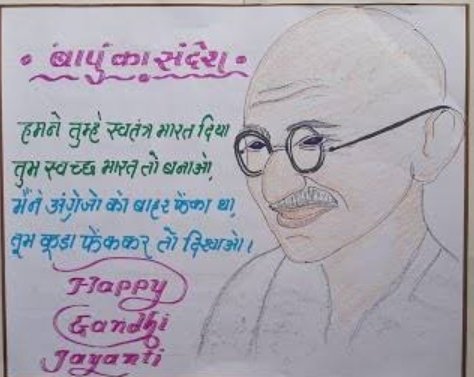 • बापु का संदेश •
हमने तुम्हे स्वतंत्र भारत दिया
तुम स्वच्छ भारत तो बनाओ,
मैंने अंग्रेजो को बाहर फेंका था,
तुम कूडा फेंककर तो दिखाओ।
Happy
Gandhi
Jayanti